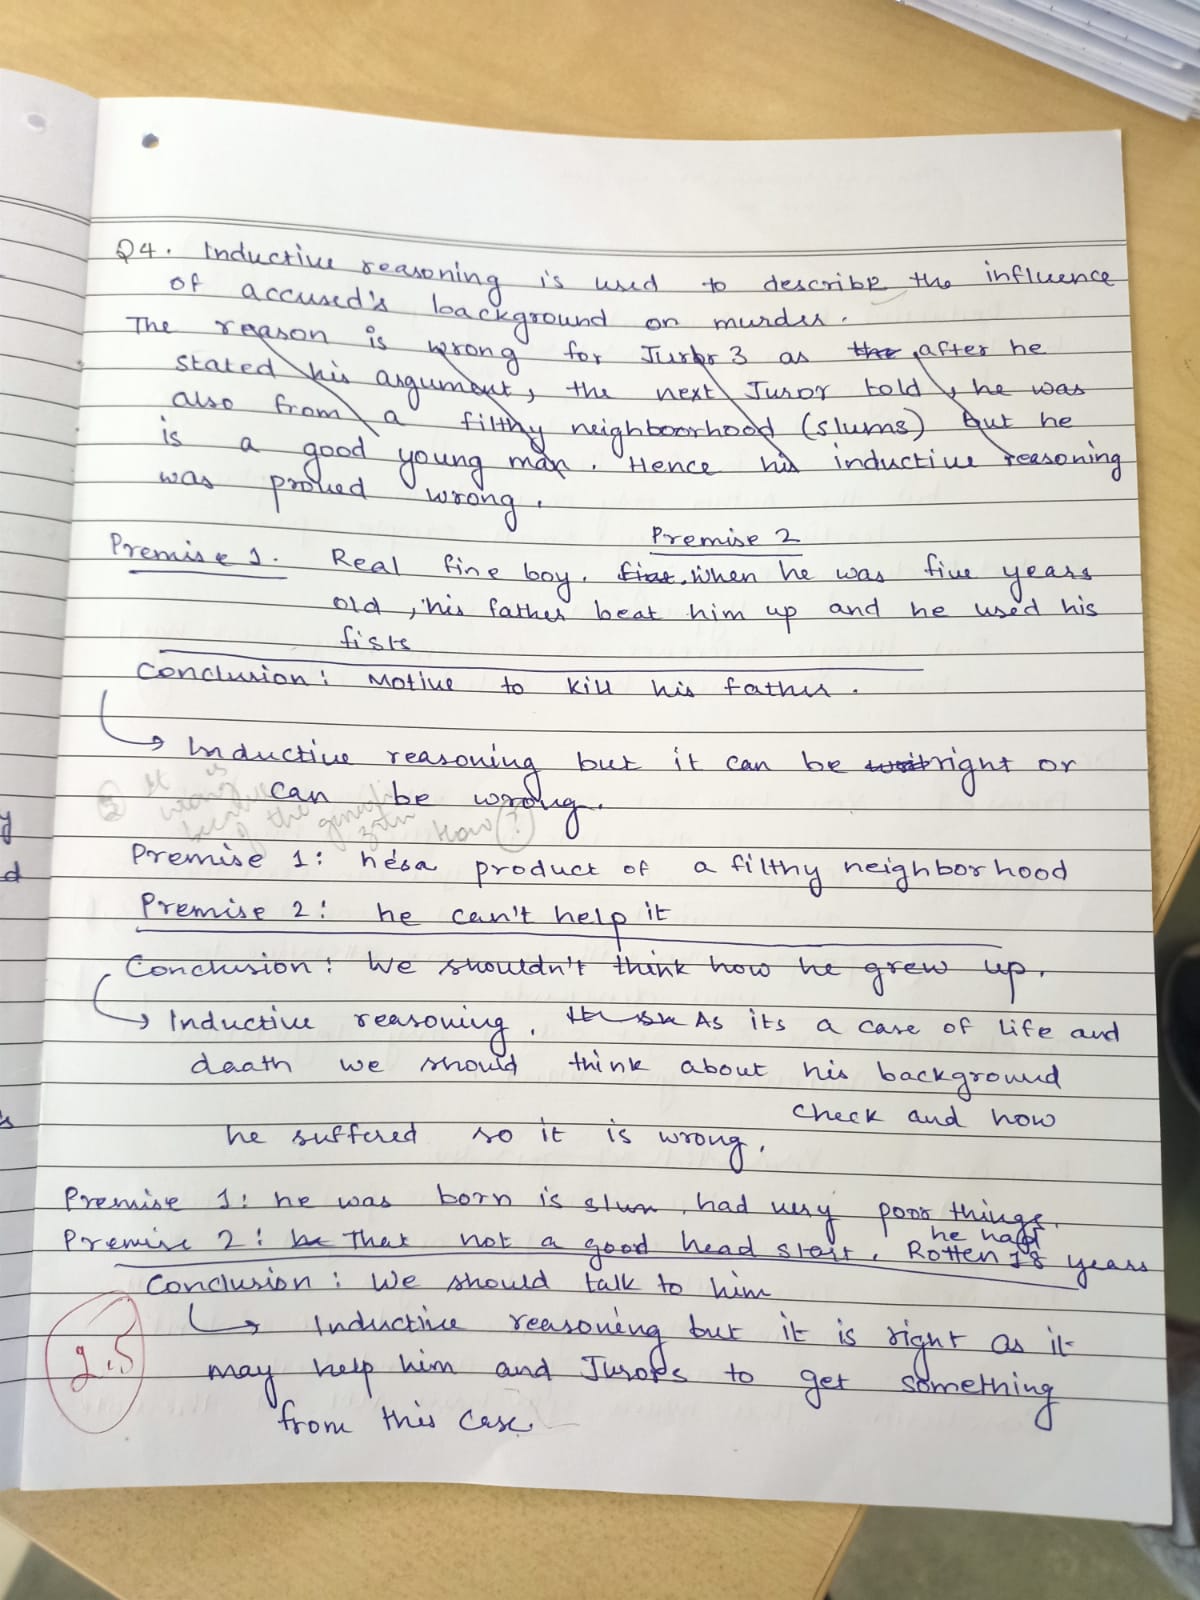 Q4. Inductive reasoning is used to describe the influence
of accused's background on murder.
The reason is wrong for Juror 3 as the after he
stated his argument, the next Juror told, he was
also from a filthy neighboorhood (slums) but he
is a good young man. Hence his inductive reasoning
was proved wrong.
Premise 2
Premise 1. Real fine boy. first. When he was five years
old, his father beat him up and he used his
fists
Conclusion: Motive to kill his father.
Inductive reasoning but it can be right or
can be wrong.
② It is
wrong
of the How ?
Premise 1: he's a product of a filthy neighborhood
Premise 2: he can't help it
Conclusion: We shouldn't think how he grew up.
Inductive reasoning. As its a case of life and
daath we should think about his background
check and how
he suffered so it is wrong.
Premise 1: he was born is slum, had very poor things.
he had
Premise 2: he That not a good head start. Rotten 18 years
Conclusion: We should talk to him
Inductive reasoning but it is right as it
may help him and Jurors to get something
from this case.
2.5